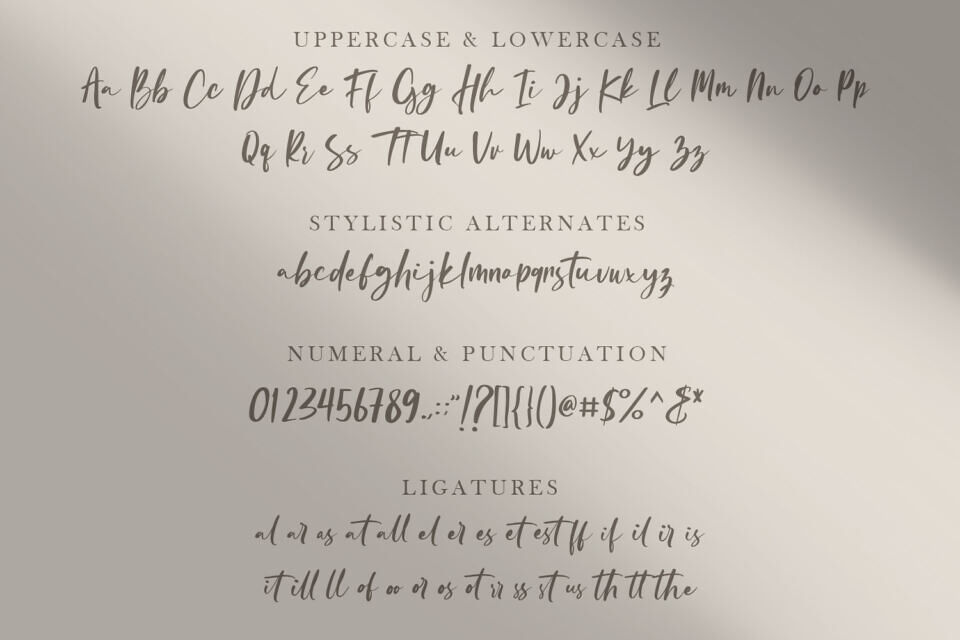 UPPERCASE & LOWERCASE
Aa Bb Cc Dd Ee Ff Gg Hh Ii Jj Kk Ll Mm Nn Oo Pp
Qq Rr Ss Tt Uu Vv Ww Xx Yy Zz
STYLISTIC ALTERNATES
abcdefghijklmnopqrstuvwxyz
NUMERAL & PUNCTUATION
0123456789.,:;"!?[]{}()@#$%^&*
LIGATURES
al ar as at all el er es et est ff if il ir is
it ill ll of oo or os ot rr ss st us th tt the